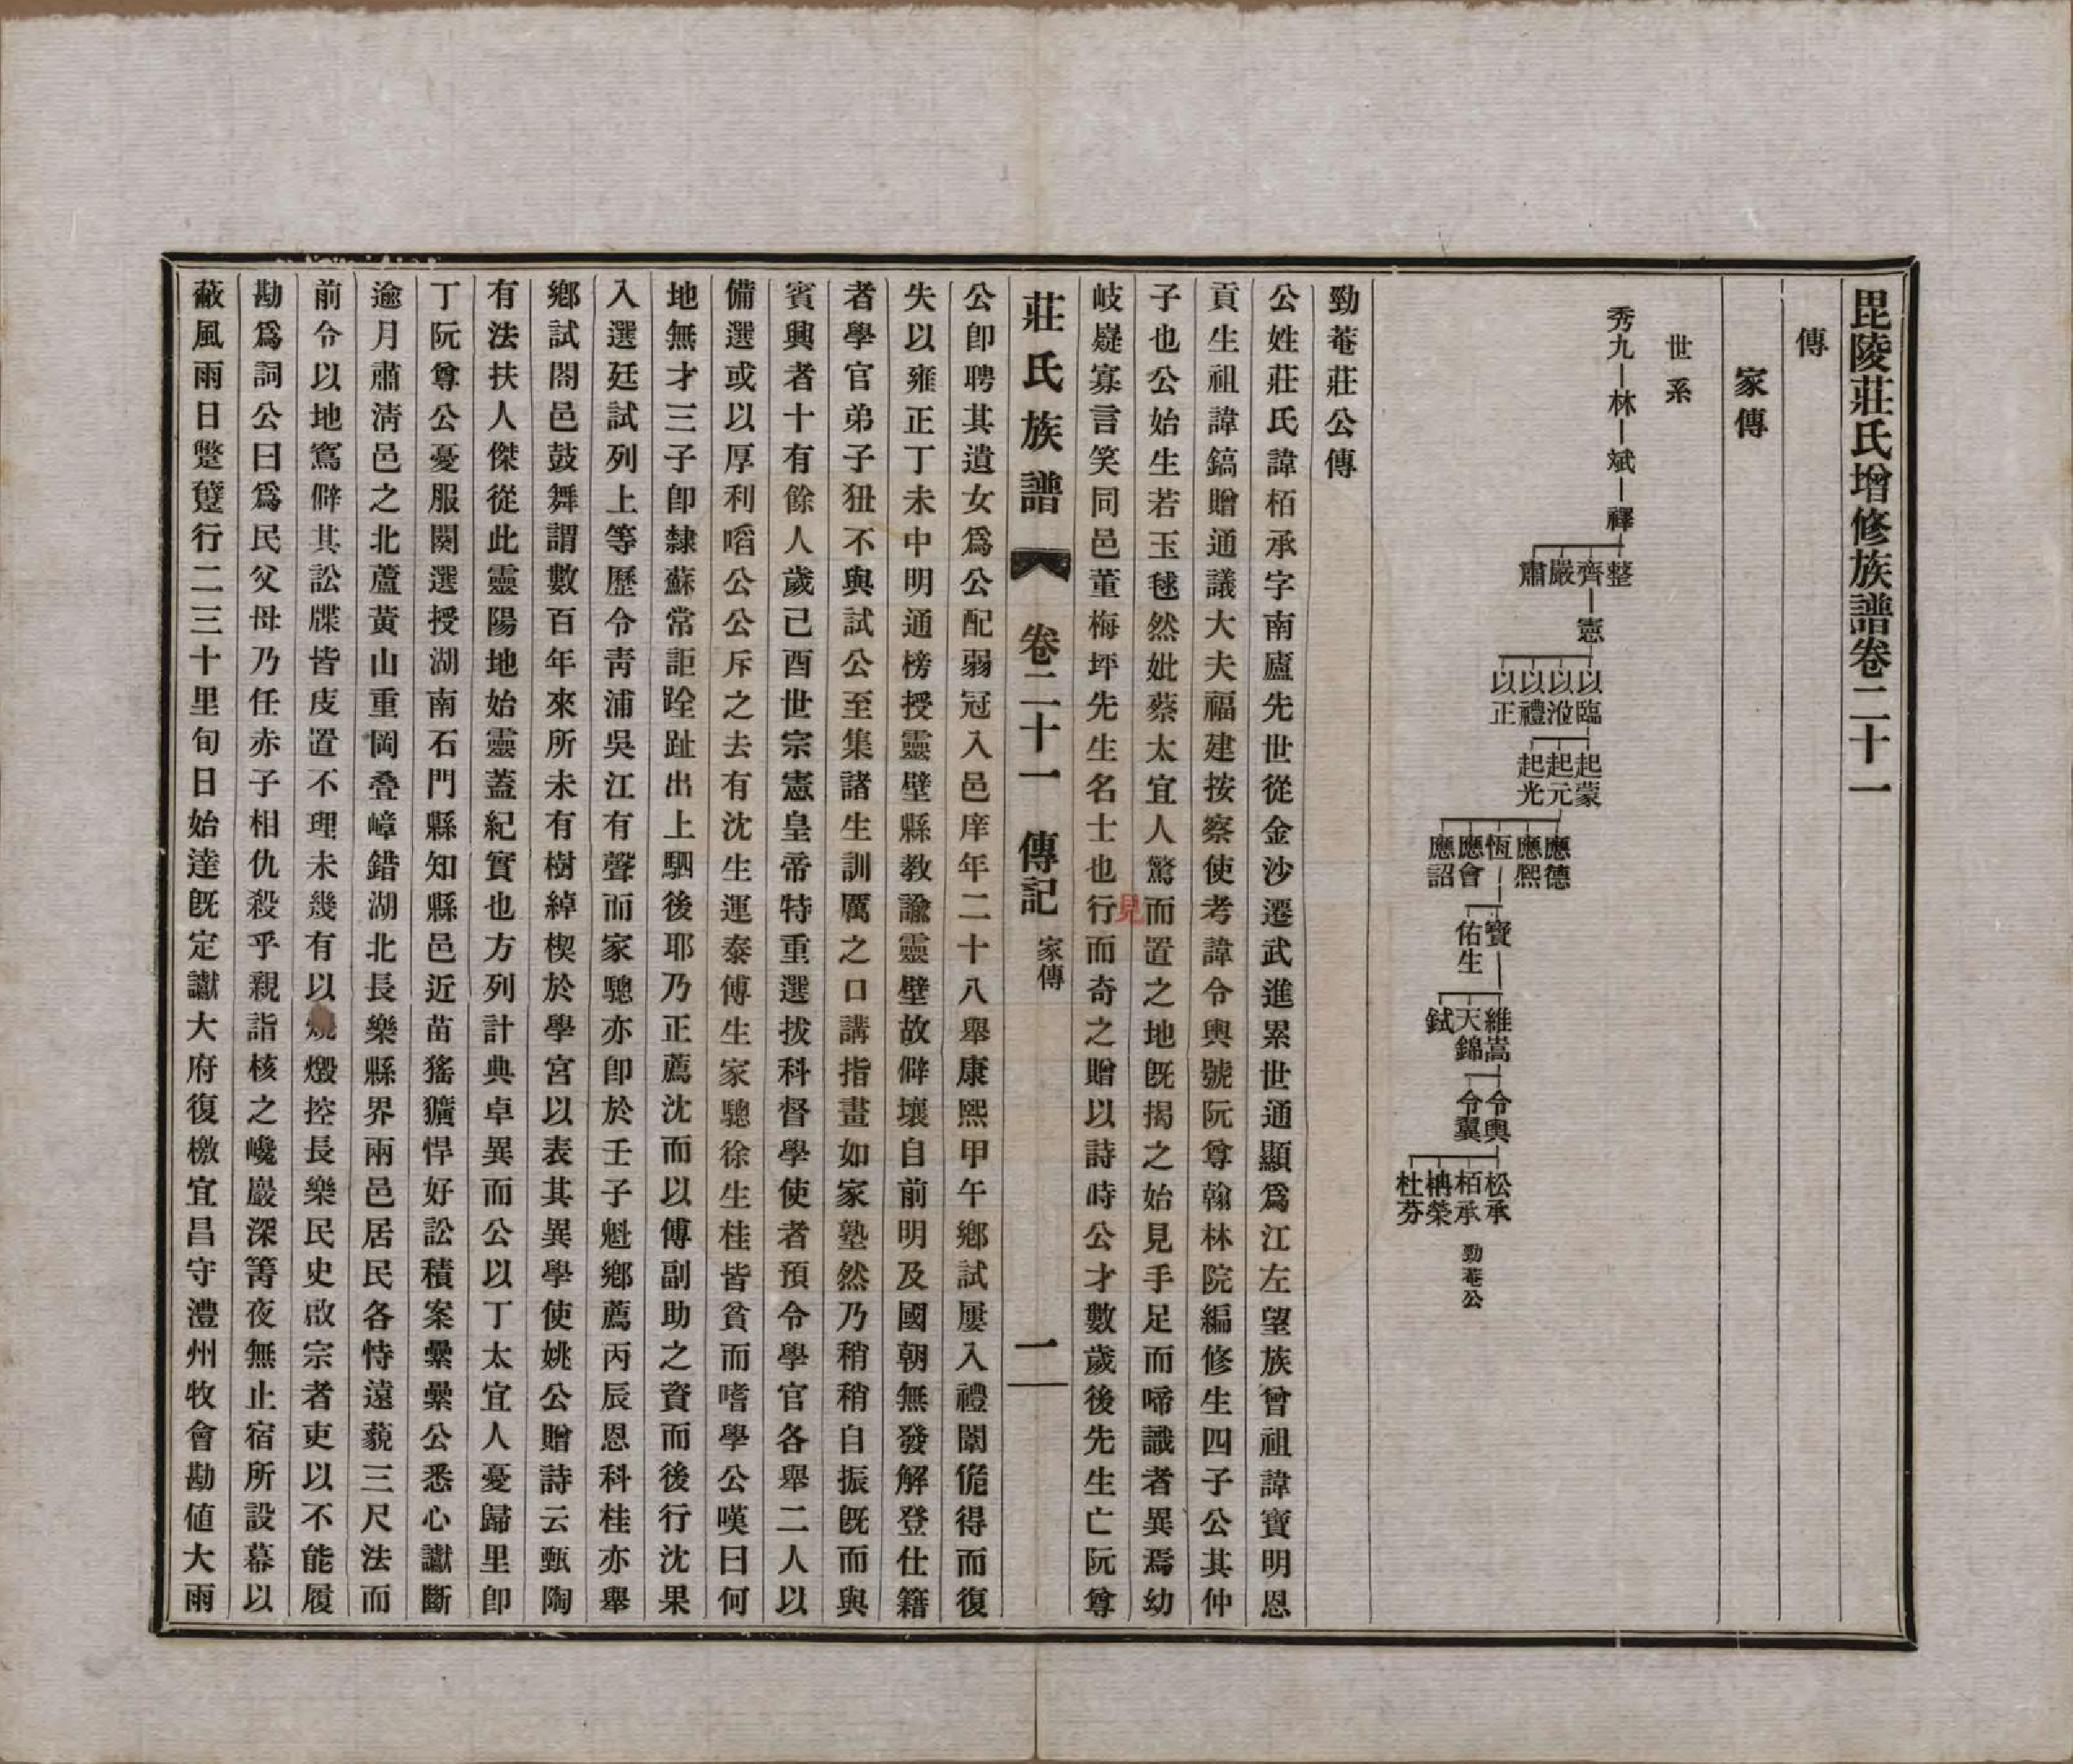 毘陵莊氏增修族譜卷二十一
傳
家傳
世系
秀九 林 斌 禪
整 齊 嚴 肅
憲
以臨 以涖 以禮 以正
起蒙 起元 起光
應德 應熙 恆 應會 應詔
寶 佑生
維嵩 天錦 鋱
令輿 令翼
松承 栢承 柟榮 杜芬
勁菴公
勁菴莊公傳
公姓莊氏諱栢承字南廬先世從金沙遷武進累世通顯爲江左望族曾祖諱寶明恩
貢生祖諱鎬贈通議大夫福建按察使考諱令輿號阮尊翰林院編修生四子公其仲
子也公始生若玉毬然妣蔡太宜人驚而置之地旣揭之始見手足而啼識者異焉幼
見
岐嶷寡言笑同邑董梅坪先生名士也行而奇之贈以詩時公才數歲後先生亡阮尊
莊氏族譜 卷二十一 傳記 家傳 一
公卽聘其遺女爲公配弱冠入邑庠年二十八舉康熙甲午鄉試屢入禮闈佹得而復
失以雍正丁未中明通榜授靈壁縣教諭靈壁故僻壤自前明及國朝無發解登仕籍
者學官弟子狃不與試公至集諸生訓厲之口講指畫如家塾然乃稍稍自振旣而與
賓興者十有餘人歲己酉世宗憲皇帝特重選拔科督學使者預令學官各舉二人以
備選或以厚利啗公公斥之去有沈生運泰傅生家驄徐生桂皆貧而嗜學公嘆曰何
地無才三子卽隸蘇常詎跧趾出上駟後耶乃正薦沈而以傅副助之資而後行沈果
入選廷試列上等歷令靑浦吳江有聲而家驄亦卽於壬子魁鄉薦丙辰恩科桂亦舉
鄉試閤邑鼓舞謂數百年來所未有樹綽楔於學宮以表其異學使姚公贈詩云甄陶
有法扶人傑從此靈陽地始靈蓋紀實也方列計典卓異而公以丁太宜人憂歸里卽
丁阮尊公憂服闋選授湖南石門縣知縣邑近苗猺獷悍好訟積案纍纍公悉心讞斷
逾月肅淸邑之北蘆黃山重岡叠嶂錯湖北長樂縣界兩邑居民各恃遠藐三尺法而
前令以地窵僻其訟牒皆庋置不理未幾有以燒燬控長樂民史啟宗者吏以不能履
勘爲詞公曰爲民父母乃任赤子相仇殺乎親詣核之巉巖深箐夜無止宿所設幕以
蔽風雨日蹩躠行二三十里旬日始達旣定讞大府復檄宜昌守澧州牧會勘値大雨